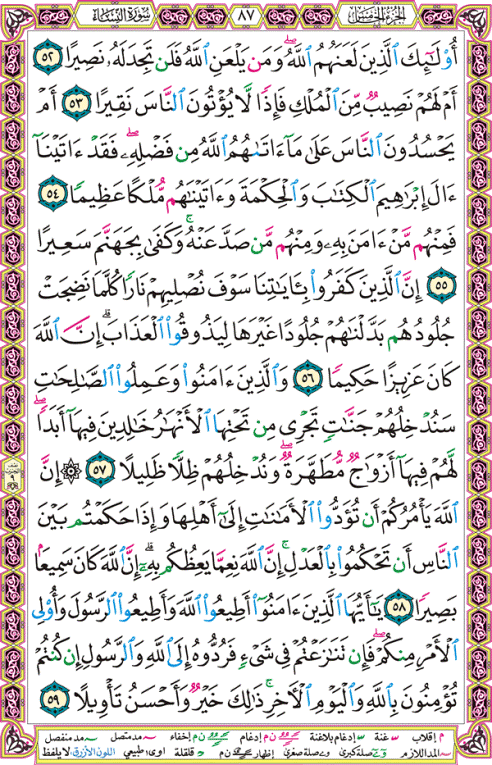 الجزء الخامس ٨٧ سورة النساء
أُوْلَٰٓئِكَ ٱلَّذِينَ لَعَنَهُمُ ٱللَّهُۖ وَمَن يَلْعَنِ ٱللَّهُ فَلَن تَجِدَ لَهُۥ نَصِيرًا ٥٢
أَمْ لَهُمْ نَصِيبٌ مِّنَ ٱلْمُلْكِ فَإِذًا لَّا يُؤْتُونَ ٱلنَّاسَ نَقِيرًا ٥٣ أَمْ
يَحْسُدُونَ ٱلنَّاسَ عَلَىٰ مَآ ءَاتَىٰهُمُ ٱللَّهُ مِن فَضْلِهِۦۖ فَقَدْ ءَاتَيْنَآ
ءَالَ إِبْرَٰهِيمَ ٱلْكِتَٰبَ وَٱلْحِكْمَةَ وَءَاتَيْنَٰهُم مُّلْكًا عَظِيمًا ٥٤
فَمِنْهُم مَّنْ ءَامَنَ بِهِۦ وَمِنْهُم مَّن صَدَّ عَنْهُۚ وَكَفَىٰ بِجَهَنَّمَ سَعِيرًا
٥٥ إِنَّ ٱلَّذِينَ كَفَرُوا۟ بِـَٔايَٰتِنَا سَوْفَ نُصْلِيهِمْ نَارًا كُلَّمَا نَضِجَتْ
جُلُودُهُم بَدَّلْنَٰهُمْ جُلُودًا غَيْرَهَا لِيَذُوقُوا۟ ٱلْعَذَابَۗ إِنَّ ٱللَّهَ
كَانَ عَزِيزًا حَكِيمًا ٥٦ وَٱلَّذِينَ ءَامَنُوا۟ وَعَمِلُوا۟ ٱلصَّٰلِحَٰتِ
سَنُدْخِلُهُمْ جَنَّٰتٍ تَجْرِى مِن تَحْتِهَا ٱلْأَنْهَٰرُ خَٰلِدِينَ فِيهَآ أَبَدًاۖ
لَّهُمْ فِيهَآ أَزْوَٰجٌ مُّطَهَّرَةٌۖ وَنُدْخِلُهُمْ ظِلًّا ظَلِيلًا ٥٧ ۞ إِنَّ
ٱللَّهَ يَأْمُرُكُمْ أَن تُؤَدُّوا۟ ٱلْأَمَٰنَٰتِ إِلَىٰٓ أَهْلِهَا وَإِذَا حَكَمْتُم بَيْنَ
ٱلنَّاسِ أَن تَحْكُمُوا۟ بِٱلْعَدْلِۚ إِنَّ ٱللَّهَ نِعِمَّا يَعِظُكُم بِهِۦٓۗ إِنَّ ٱللَّهَ كَانَ سَمِيعًۢا
بَصِيرًا ٥٨ يَٰٓأَيُّهَا ٱلَّذِينَ ءَامَنُوٓا۟ أَطِيعُوا۟ ٱللَّهَ وَأَطِيعُوا۟ ٱلرَّسُولَ وَأُو۟لِى
ٱلْأَمْرِ مِنكُمْۖ فَإِن تَنَٰزَعْتُمْ فِى شَىْءٍ فَرُدُّوهُ إِلَى ٱللَّهِ وَٱلرَّسُولِ إِن كُنتُمْ
تُؤْمِنُونَ بِٱللَّهِ وَٱلْيَوْمِ ٱلْءَاخِرِۚ ذَٰلِكَ خَيْرٌ وَأَحْسَنُ تَأْوِيلًا ٥٩
م إقلاب س غنة س إدغام بلاغنة ن م إدغام ن م إخفاء مد متصل مد منفصل
المد اللازم صلة كبرى صلة صغرى إظهار ن م قلقلة اوى طبيعي اللون الأزرق لا يلفظ